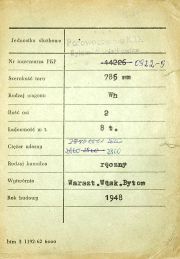 Jednostka służbowa
Nr inwentarza PKP 44226 0522-5
Szerokość toru 785 mm
Rodzaj wagonu Wh
Ilość osi 2
Ładowność w t. 8 t.
Ciężar własny
Rodzaj hamulca ręczny
Wytwórnia Warszt.Wąsk.Bytom
Rok budowy 1948